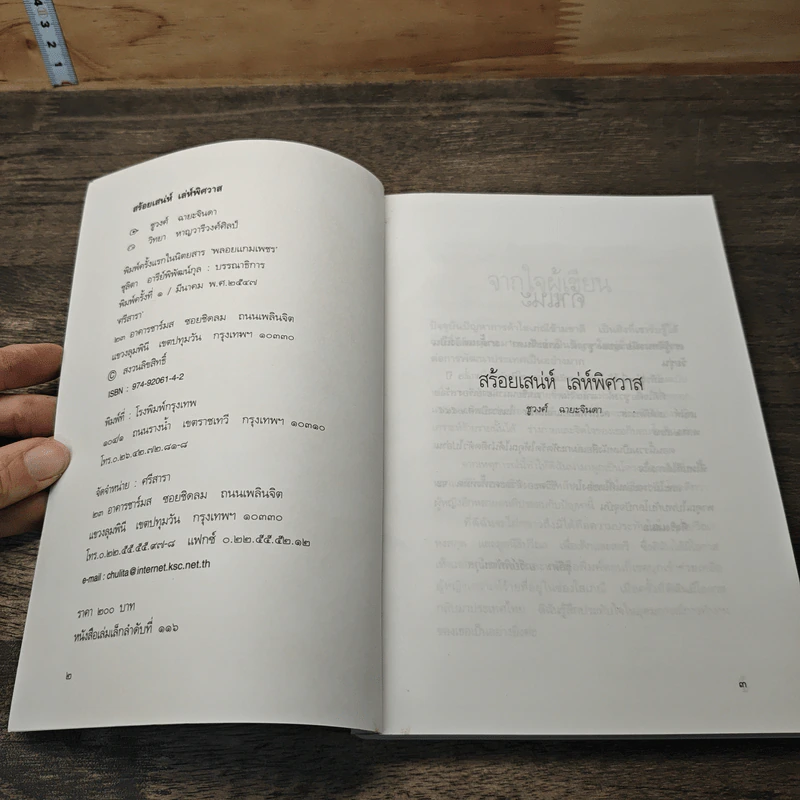 4
3
2
1
สร้อยเสน่ห์ เล่ห์พิศวาส
ชูวงศ์ ฉายะจินดา
วิทยา หาญวารีวงศ์ศิลป์
พิมพ์ครั้งแรกในนิตยสาร 'พลอยแกมเพชร'
ชุลิตา อารีย์พิพัฒน์กุล : บรรณาธิการ
พิมพ์ครั้งที่ ๑ / มีนาคม พ.ศ.๒๕๔๗
'ศรีสารา'
๒๓ อาคารชาร์มส ซอยชิดลม ถนนเพลินจิต
แขวงลุมพินี เขตปทุมวัน กรุงเทพฯ ๑๐๓๓๐
© สงวนลิขสิทธิ์
ISBN : 974-92061-4-2
พิมพ์ที่ : โรงพิมพ์กรุงเทพ
๑๐๔/๑ ถนนรางน้ำ เขตราชเทวี กรุงเทพฯ ๑๐๓๑๐
โทร.๐.๒๖.๔๒.๗๒.๘๑-๘
จัดจำหน่าย : ศรีสารา
๒๓ อาคารชาร์มส ซอยชิดลม ถนนเพลินจิต
แขวงลุมพินี เขตปทุมวัน กรุงเทพฯ ๑๐๓๓๐
โทร.๐.๒๒.๕๕.๕๕.๔๗-๘ แฟกซ์ ๐.๒๒.๕๕.๕๒.๑๒
e-mail : chulita@internet.ksc.net.th
ราคา ๒๐๐ บาท
หนังสือเล่มเล็กลำดับที่ ๑๑๖
๒
สร้อยเสน่ห์ เล่ห์พิศวาส
ชูวงศ์ ฉายะจินดา
๓